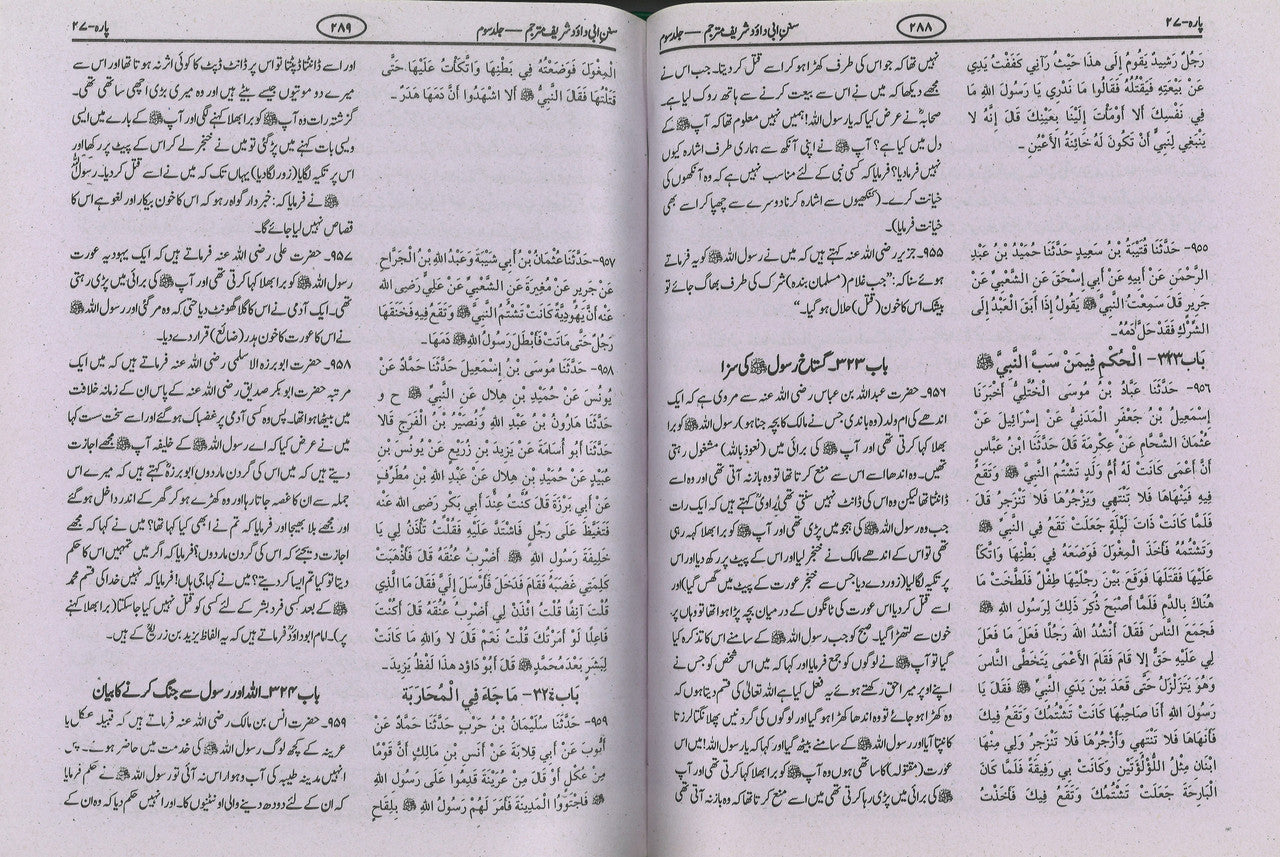 پارہ-۲۷
۲۸۸
سنن ابی داؤد شریف مترجم — جلد سوم
رَجُلٌ رَشِيدٌ يَقُومُ إِلَى هَذَا حَيْثُ رَآنِي كَفَفْتُ يَدِي
عَنْ بَيْعَتِهِ فَيَقْتُلُهُ فَقَالُوا مَا نَدْرِي يَا رَسُولَ اللهِ مَا
فِي نَفْسِكَ أَلَا أَوْمَأْتَ إِلَيْنَا بِعَيْنِكَ قَالَ إِنَّهُ لَا
يَنْبَغِي لِنَبِيٍّ أَنْ تَكُونَ لَهُ خَائِنَةُ الْأَعْيُنِ۔
۹۵۵- حَدَّثَنَا قُتَيْبَةُ بْنُ سَعِيدٍ حَدَّثَنَا حُمَيْدُ بْنُ عَبْدِ
الرَّحْمَنِ عَنْ أَبِيهِ عَنْ أَبِي إِسْحَقَ عَنِ الشَّعْبِيِّ عَنْ
جَرِيرٍ قَالَ سَمِعْتُ النَّبِيَّ ﷺ يَقُولُ إِذَا أَبَقَ الْعَبْدُ إِلَى
الشِّرْكِ فَقَدْ حَلَّ دَمُهُ۔
باب۳۲۳- الْحُكْمِ فِيمَنْ سَبَّ النَّبِيَّ ﷺ
۹۵۶- حَدَّثَنَا عَبَّادُ بْنُ مُوسَى الْخُتَّلِيُّ أَخْبَرَنَا
إِسْمَعِيلُ بْنُ جَعْفَرٍ الْمَدَنِيُّ عَنْ إِسْرَائِيلَ عَنْ
عُثْمَانَ الشَّحَّامِ عَنْ عِكْرِمَةَ قَالَ حَدَّثَنَا ابْنُ عَبَّاسٍ
أَنَّ أَعْمَى كَانَتْ لَهُ أُمُّ وَلَدٍ تَشْتُمُ النَّبِيَّ ﷺ وَتَقَعُ
فِيهِ فَيَنْهَاهَا فَلَا تَنْتَهِي وَيَزْجُرُهَا فَلَا تَنْزَجِرُ قَالَ
فَلَمَّا كَانَتْ ذَاتَ لَيْلَةٍ جَعَلَتْ تَقَعُ فِي النَّبِيِّ ﷺ
وَتَشْتُمُهُ فَأَخَذَ الْمِغْوَلَ فَوَضَعَهُ فِي بَطْنِهَا وَاتَّكَأَ
عَلَيْهَا فَقَتَلَهَا فَوَقَعَ بَيْنَ رِجْلَيْهَا طِفْلٌ فَلَطَّخَتْ مَا
هُنَاكَ بِالدَّمِ فَلَمَّا أَصْبَحَ ذُكِرَ ذَلِكَ لِرَسُولِ اللهِ ﷺ
فَجَمَعَ النَّاسَ فَقَالَ أَنْشُدُ اللهَ رَجُلًا فَعَلَ مَا فَعَلَ
لِي عَلَيْهِ حَقٌّ إِلَّا قَامَ فَقَامَ الْأَعْمَى يَتَخَطَّى النَّاسَ
وَهُوَ يَتَزَلْزَلُ حَتَّى قَعَدَ بَيْنَ يَدَيِ النَّبِيِّ ﷺ فَقَالَ يَا
رَسُولَ اللهِ أَنَا صَاحِبُهَا كَانَتْ تَشْتُمُكَ وَتَقَعُ فِيكَ
فَأَنْهَاهَا فَلَا تَنْتَهِي وَأَزْجُرُهَا فَلَا تَنْزَجِرُ وَلِي مِنْهَا
ابْنَانِ مِثْلُ اللُّؤْلُؤَتَيْنِ وَكَانَتْ بِي رَفِيقَةً فَلَمَّا كَانَ
الْبَارِحَةَ جَعَلَتْ تَشْتُمُكَ وَتَقَعُ فِيكَ فَأَخَذْتُ
نہیں تھا کہ جو اس کی طرف کھڑا ہو کر اسے قتل کر دیتا۔ جب اس نے
مجھے دیکھا کہ میں نے اس سے بیعت کرنے سے ہاتھ روک لیا ہے۔
صحابہؓ نے عرض کیا کہ یا رسول اللہ! ہمیں نہیں معلوم تھا کہ آپ ﷺ کے
دل میں کیا ہے؟ آپ ﷺ نے اپنی آنکھ سے ہماری طرف اشارہ کیوں
نہیں فرما دیا؟ فرمایا کہ کسی نبی کے لئے مناسب نہیں ہے کہ وہ آنکھوں کی
خیانت کرے۔ (کنکھیوں سے اشارہ کرنا دوسرے سے چھپا کر اسے بھی
خیانت فرمایا)۔
۹۵۵۔ جریر رضی اللہ عنہ کہتے ہیں کہ میں نے رسول اللہ ﷺ کو یہ فرماتے
ہوئے سنا کہ: ”جب غلام (مسلمان بندہ) شرک کی طرف بھاگ جائے تو
بیشک اس کا خون (قتل) حلال ہو گیا“۔
باب ۳۲۳۔ گستاخ رسول ﷺ کی سزا
۹۵۶۔ حضرت عبداللہ بن عباس رضی اللہ عنہ سے مروی ہے کہ ایک
اندھے کی ام ولد (وہ باندی، جس نے مالک کا بچہ جنا ہو) رسول اللہ ﷺ کو برا
بھلا کہا کرتی تھی اور آپ ﷺ کی برائی میں (نعوذ باللہ) مشغول رہتی
تھیں۔ وہ اندھا اسے اس سے منع کرتا تھا تو وہ باز نہ آتی تھی اور وہ اسے
ڈانٹتا تھا لیکن وہ اس کی ڈانٹ نہیں سنتی تھی راوی کہتے ہیں کہ ایک رات
جب وہ رسول اللہ ﷺ کی ہجو میں پڑی تھی اور آپ ﷺ کو برا بھلا کہہ رہی
تھی تو اس کے اندھے مالک نے خنجر لیا اور اس کے پیٹ پر رکھ دیا اور اس
پر تکیہ لگا لیا (زور دے دیا) جس سے خنجر عورت کے پیٹ میں گھس گیا) اور
اسے قتل کر دیا اس عورت کی ٹانگوں کے درمیان بچہ پڑا ہوا تھا تو وہاں پر
خون سے لتھڑا گیا۔ صبح کو جب رسول اللہ ﷺ کے سامنے اس کا تذکرہ کیا
گیا تو آپ ﷺ نے لوگوں کو جمع فرمایا اور کہا کہ میں اس شخص کو جس نے
اپنے اوپر میرا حق رکھتے ہوئے یہ فعل کیا ہے اللہ تعالیٰ کی قسم دیتا ہوں کہ
وہ کھڑا ہو جائے تو وہ اندھا کھڑا ہو گیا اور لوگوں کی گردنیں پھلانگتا لرزتا
کانپتا آیا اور رسول اللہ ﷺ کے سامنے بیٹھ گیا اور کہا کہ یا رسول اللہ! میں اس
عورت (مقتولہ) کا ساتھی ہوں وہ آپ ﷺ کو برا بھلا کہا کرتی تھی اور آپ
ﷺ کی برائی میں پڑی رہا کرتی تھی میں اسے منع کرتا تھا کہ وہ باز نہ آتی تھی
سنن ابی داؤد شریف مترجم — جلد سوم
۲۸۹
پارہ-۲۷
الْمِغْوَلَ فَوَضَعْتُهُ فِي بَطْنِهَا وَاتَّكَأْتُ عَلَيْهَا حَتَّى
قَتَلْتُهَا فَقَالَ النَّبِيُّ ﷺ أَلَا اشْهَدُوا أَنَّ دَمَهَا هَدَرٌ۔
۹۵۷- حَدَّثَنَا عُثْمَانُ بْنُ أَبِي شَيْبَةَ وَعَبْدُ اللهِ بْنُ الْجَرَّاحِ
عَنْ جَرِيرٍ عَنْ مُغِيرَةَ عَنِ الشَّعْبِيِّ عَنْ عَلِيٍّ رضى الله
عنه أَنَّ يَهُودِيَّةً كَانَتْ تَشْتُمُ النَّبِيَّ ﷺ وَتَقَعُ فِيهِ فَخَنَقَهَا
رَجُلٌ حَتَّى مَاتَتْ فَأَبْطَلَ رَسُولُ اللهِ ﷺ دَمَهَا۔
۹۵۸- حَدَّثَنَا مُوسَى بْنُ إِسْمَعِيلَ حَدَّثَنَا حَمَّادٌ عَنْ
يُونُسَ عَنْ حُمَيْدِ بْنِ هِلَالٍ عَنِ النَّبِيِّ ﷺ ح و
حَدَّثَنَا هَارُونُ بْنُ عَبْدِ اللهِ وَنُصَيْرُ بْنُ الْفَرَجِ قَالَا
حَدَّثَنَا أَبُو أُسَامَةَ عَنْ يَزِيدَ بْنِ زُرَيْعٍ عَنْ يُونُسَ بْنِ
عُبَيْدٍ عَنْ حُمَيْدِ بْنِ هِلَالٍ عَنْ عَبْدِ اللهِ بْنِ مُطَرِّفٍ
عَنْ أَبِي بَرْزَةَ قَالَ كُنْتُ عِنْدَ أَبِي بَكْرٍ رضى الله عنه
فَتَغَيَّظَ عَلَى رَجُلٍ فَاشْتَدَّ عَلَيْهِ فَقُلْتُ تَأْذَنُ لِي يَا
خَلِيفَةَ رَسُولِ اللهِ ﷺ أَضْرِبُ عُنُقَهُ قَالَ فَأَذْهَبَتْ
كَلِمَتِي غَضَبَهُ فَقَامَ فَدَخَلَ فَأَرْسَلَ إِلَيَّ فَقَالَ مَا الَّذِي
قُلْتَ آنِفًا قُلْتُ ائْذَنْ لِي أَضْرِبُ عُنُقَهُ قَالَ أَكُنْتَ
فَاعِلًا لَوْ أَمَرْتُكَ قُلْتُ نَعَمْ قَالَ لَا وَاللهِ مَا كَانَتْ
لِبَشَرٍ بَعْدَ مُحَمَّدٍ ﷺ قَالَ أَبُو دَاوُد هَذَا لَفْظُ يَزِيدَ۔
باب۳۲٤- مَا جَاءَ فِي الْمُحَارَبَةِ
۹۵۹- حَدَّثَنَا سُلَيْمَانُ بْنُ حَرْبٍ حَدَّثَنَا حَمَّادٌ عَنْ
أَيُّوبَ عَنْ أَبِي قِلَابَةَ عَنْ أَنَسِ بْنِ مَالِكٍ أَنَّ قَوْمًا
مِنْ عُكْلٍ أَوْ قَالَ مِنْ عُرَيْنَةَ قَدِمُوا عَلَى رَسُولِ اللهِ
ﷺ فَاجْتَوَوُا الْمَدِينَةَ فَأَمَرَ لَهُمْ رَسُولُ اللهِ ﷺ بِلِقَاحٍ
اور اسے ڈانٹتا ڈپٹتا تو اس پر ڈانٹ ڈپٹ کا کوئی اثر نہ ہوتا تھا اور اس سے
میرے دو موتیوں جیسے بیٹے ہیں اور وہ میری بڑی اچھی ساتھی تھی۔
گزشتہ رات وہ آپ ﷺ کو برا بھلا کہنے لگی اور آپ ﷺ کے بارے میں ایسی
ویسی بات کہنے میں پڑ گئی تو میں نے خنجر لے کر اس کے پیٹ پر رکھا اور
اس پر تکیہ لگایا (زور لگا دیا) یہاں تک کہ میں نے اسے قتل کر دیا۔ رسول اللہ
ﷺ نے فرمایا کہ: خبردار گواہ رہو کہ اس کا خون بیکار اور لغو ہے اس کا
قصاص نہیں لیا جائے گا۔
۹۵۷۔ حضرت علی رضی اللہ عنہ فرماتے ہیں کہ ایک یہودیہ عورت
رسول اللہ ﷺ کو برا بھلا کہا کرتی تھی اور آپ ﷺ کی برائی میں پڑی رہتی
تھی۔ ایک آدمی نے اس کا گلا گھونٹ دیا حتی کہ وہ مرگئی اور رسول اللہ ﷺ
نے اس کا عورت کا خون ہدر (ضائع) قرار دے دیا۔
۹۵۸۔ حضرت ابو برزہ الاسلمی رضی اللہ عنہ فرماتے ہیں کہ میں ایک
مرتبہ حضرت ابوبکر صدیق رضی اللہ عنہ کے پاس ان کے زمانہ خلافت
میں بیٹھا ہوا تھا۔ پس وہ کسی آدمی پر غضبناک ہو گئے اور اسے سخت سست کہا
میں نے عرض کیا کہ اے رسول اللہ کے خلیفہ آپ ﷺ مجھے اجازت
دیتے ہیں کہ میں اس کی گردن مار دوں؟ ابو برزہ کہتے ہیں کہ میرے اس
جملہ سے ان کا غصہ جاتا رہا اور وہ کھڑے ہو کر گھر کے اندر داخل ہو گئے
اور مجھے بلا بھیجا اور فرمایا کہ تم نے ابھی کیا کہا تھا؟ میں نے کہا کہ مجھے
اجازت دیجئے کہ اس کی گردن مار دوں؟ فرمایا کہ اگر میں تمہیں اس کا حکم
دیتا تو کیا تم ایسا کر دیتے؟ میں نے کہا جی ہاں! فرمایا کہ نہیں خدا کی قسم محمد
ﷺ کے بعد کسی فرد بشر کے لئے کسی کو قتل نہیں کیا جا سکتا (برا بھلا کہنے
پر)۔ امام ابو داؤدؒ فرماتے ہیں کہ یہ الفاظ یزید بن زریع کے ہیں۔
باب ۳۲۴۔ اللہ اور رسول سے جنگ کرنے کا بیان
۹۵۹۔ حضرت انس بن مالک رضی اللہ عنہ فرماتے ہیں کہ قبیلہ عکل یا
عرینہ کے کچھ لوگ رسول اللہ ﷺ کی خدمت میں حاضر ہوئے۔ پس
انہیں مدینہ طیبہ کی آب و ہوا راس نہ آئی تو رسول اللہ ﷺ نے حکم فرمایا
کہ ان کے لئے دودھ دینے والی اونٹنیوں کا۔ اور انہیں حکم دیا کہ وہ ان کے